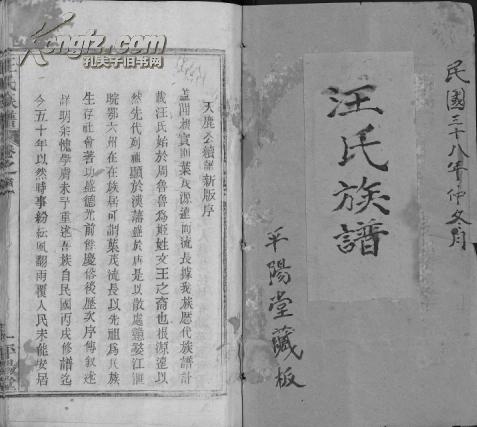 民國三十八年仲冬月
汪氏族譜
平陽堂藏板
天鹿公續譜新版序
蓋聞根實則葉茂源遠而流長據我族歷代族譜計
載汪氏始於周魯為姬姓文王之裔也根源遠以
然先代列祖顯於漢蕃盛於唐是以散處婺江匯
皖鄂六州在在族居可謂葉茂流長以先祖為氏族
生存社會著功盛德光前裕後歷次序傳叙述
詳明余愧學膚未學重述吾族自民國丙戌修譜迄
今五十年以然時事紛紜風翻雨覆人民未能安居
汪氏族譜 卷之首
Kongfz.com
孔夫子旧书网